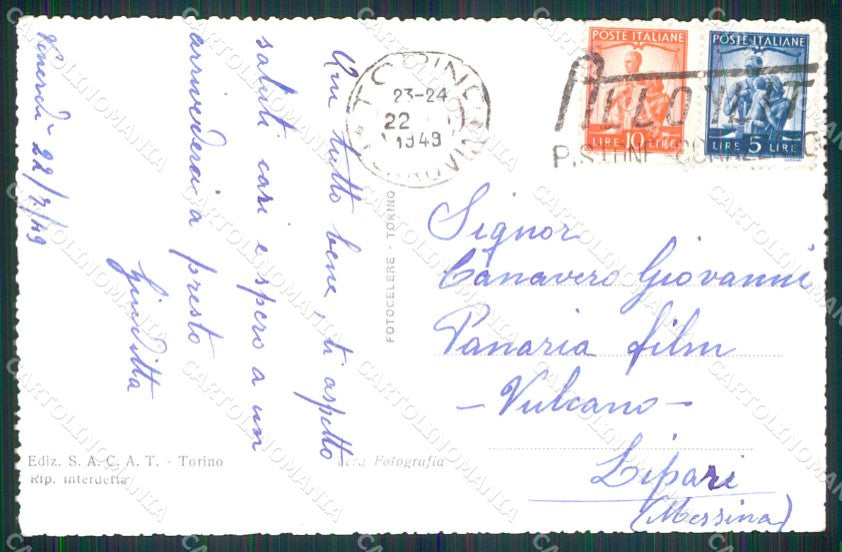 Qui tutto bene, ti aspetto
saluti cari e spero a un
arrivederci a presto
Giuditta
Venerdì 22/7/49
TORINO
23-24
22
1949
FERROVIA
POSTE ITALIANE
LIRE 10 LIRE
POSTE ITALIANE
LIRE 5 LIRE
FOTOCELERE - TORINO
Signor
Canavero Giovanni
Panaria film
- Vulcano -
Lipari
(Messina)
Ediz. S. A. C. A. T. - Torino
Rip. interdetta
Vera Fotografia
CARTOLINOMANIA